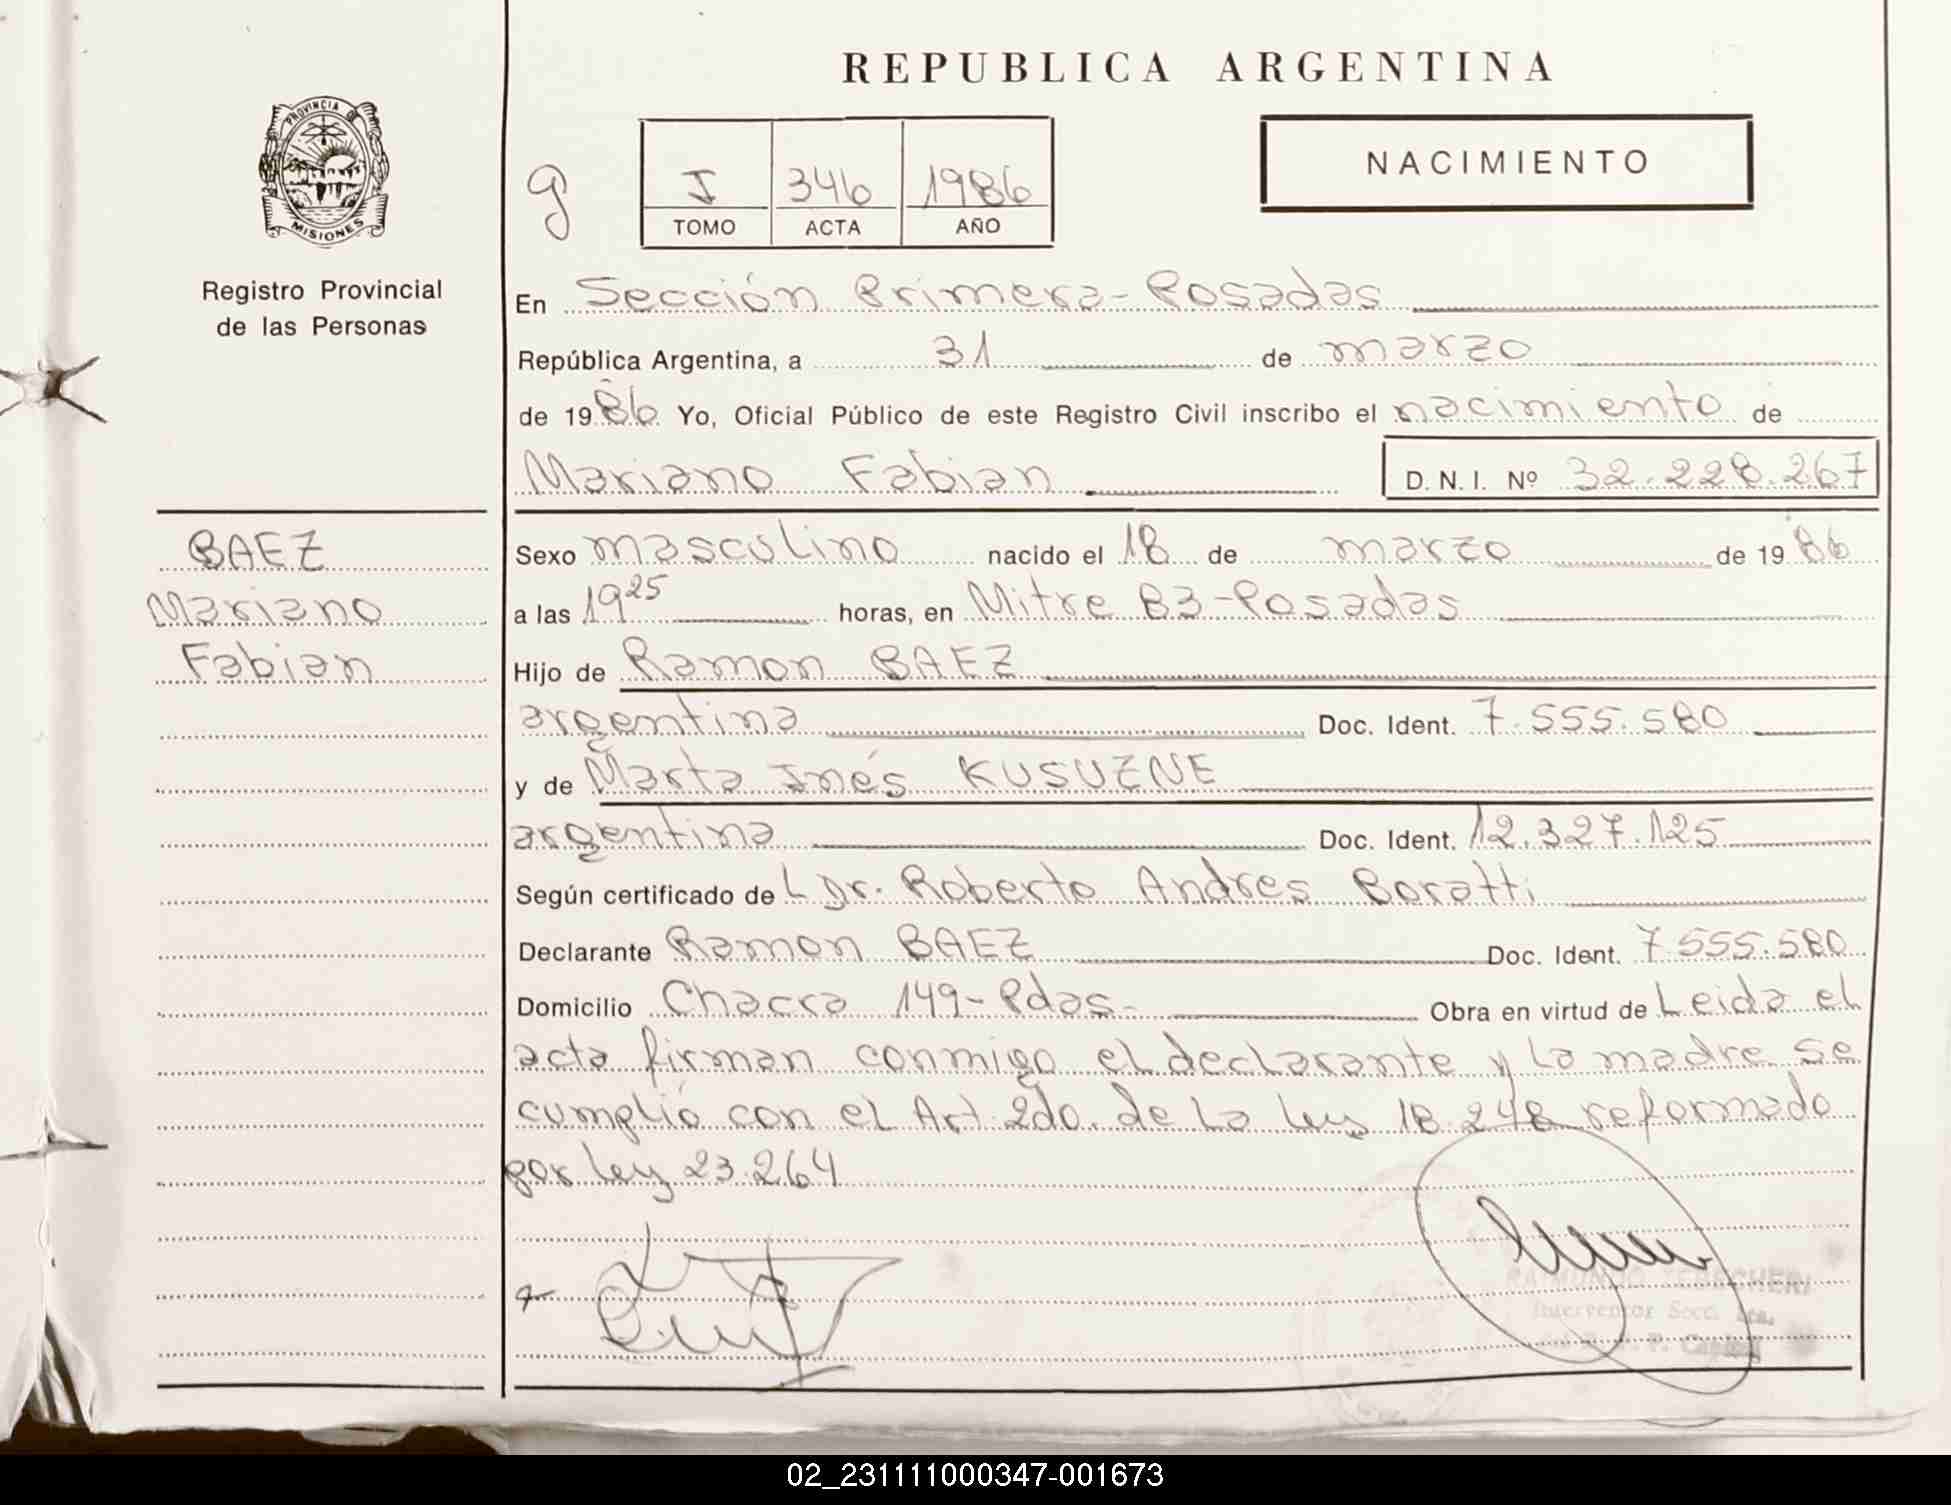 REPUBLICA ARGENTINA
PROVINCIA DE
MISIONES
Registro Provincial
de las Personas
g
I 346 1986
TOMO ACTA AÑO
NACIMIENTO
En Sección Primera - Posadas
República Argentina, a 31 de marzo
de 1986 Yo, Oficial Público de este Registro Civil inscribo el nacimiento de
Mariano Fabian D.N.I. Nº 32.228.267
BAEZ
Mariano
Fabian
Sexo masculino nacido el 18 de marzo de 1986
a las 19 25 horas, en Mitre 83 - Posadas
Hijo de Ramon BAEZ
argentina Doc. Ident. 7.555.580
y de Marta Inés KUSUZNE
argentina Doc. Ident. 12.327.125
Según certificado de L Dr. Roberto Andres Boratti
Declarante Ramon BAEZ Doc. Ident. 7.555.580
Domicilio Chacra 149 - Pdas - Obra en virtud de Leida el
acta firman conmigo el declarante y la madre se
cumplió con el Art. 2do. de la ley 18.248 reformado
por ley 23.264
RAIMUNDO
Interventor Secc. 1ra.
02_231111000347-001673